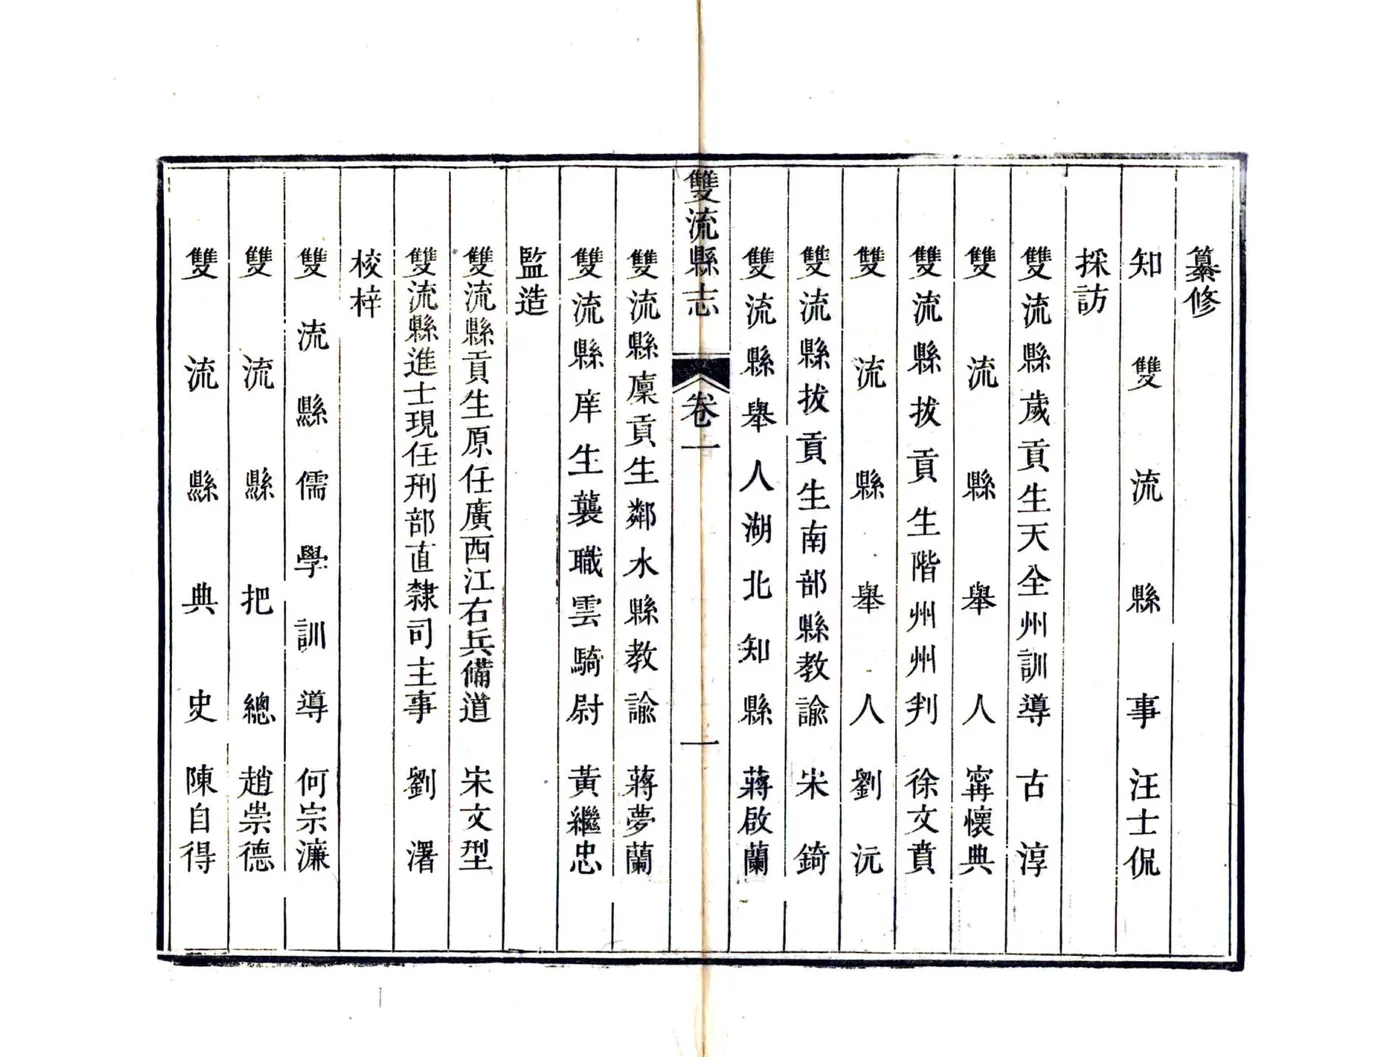 纂修
知雙流縣事汪士侃
採訪
雙流縣歲貢生天全州訓導古淳
雙流縣舉人甯懷典
雙流縣拔貢生階州州判徐文賁
雙流縣舉人劉沅
雙流縣拔貢生南部縣教諭宋錡
雙流縣舉人湖北知縣蔣啟蘭
雙流縣志
卷一
一
雙流縣廩貢生鄰水縣教諭蔣夢蘭
雙流縣庠生襲職雲騎尉黃繼忠
監造
雙流縣貢生原任廣西江右兵備道宋文型
雙流縣進士現任刑部直隸司主事劉濖
校梓
雙流縣儒學訓導何宗濂
雙流縣把總趙崇德
雙流縣典史陳自得